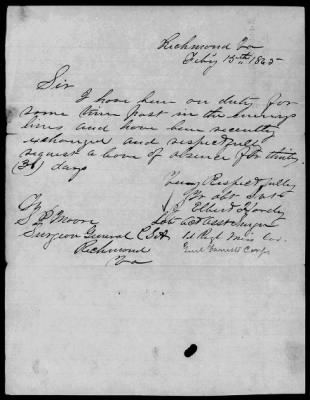 Richmond Va
Feby 15th 1865
Sir
I have been on duty for
some time past in the enemys
lines and have been recently
exchanged and respectfully
request a leave of absence for thirty
(30) days
Very Respectfully
Yr obt Svt
Elbert
To
S P Moore
Surgeon General C S A
Richmond
Va
Late Act Asst Surgn
1st Regt Miss Cav
Corps